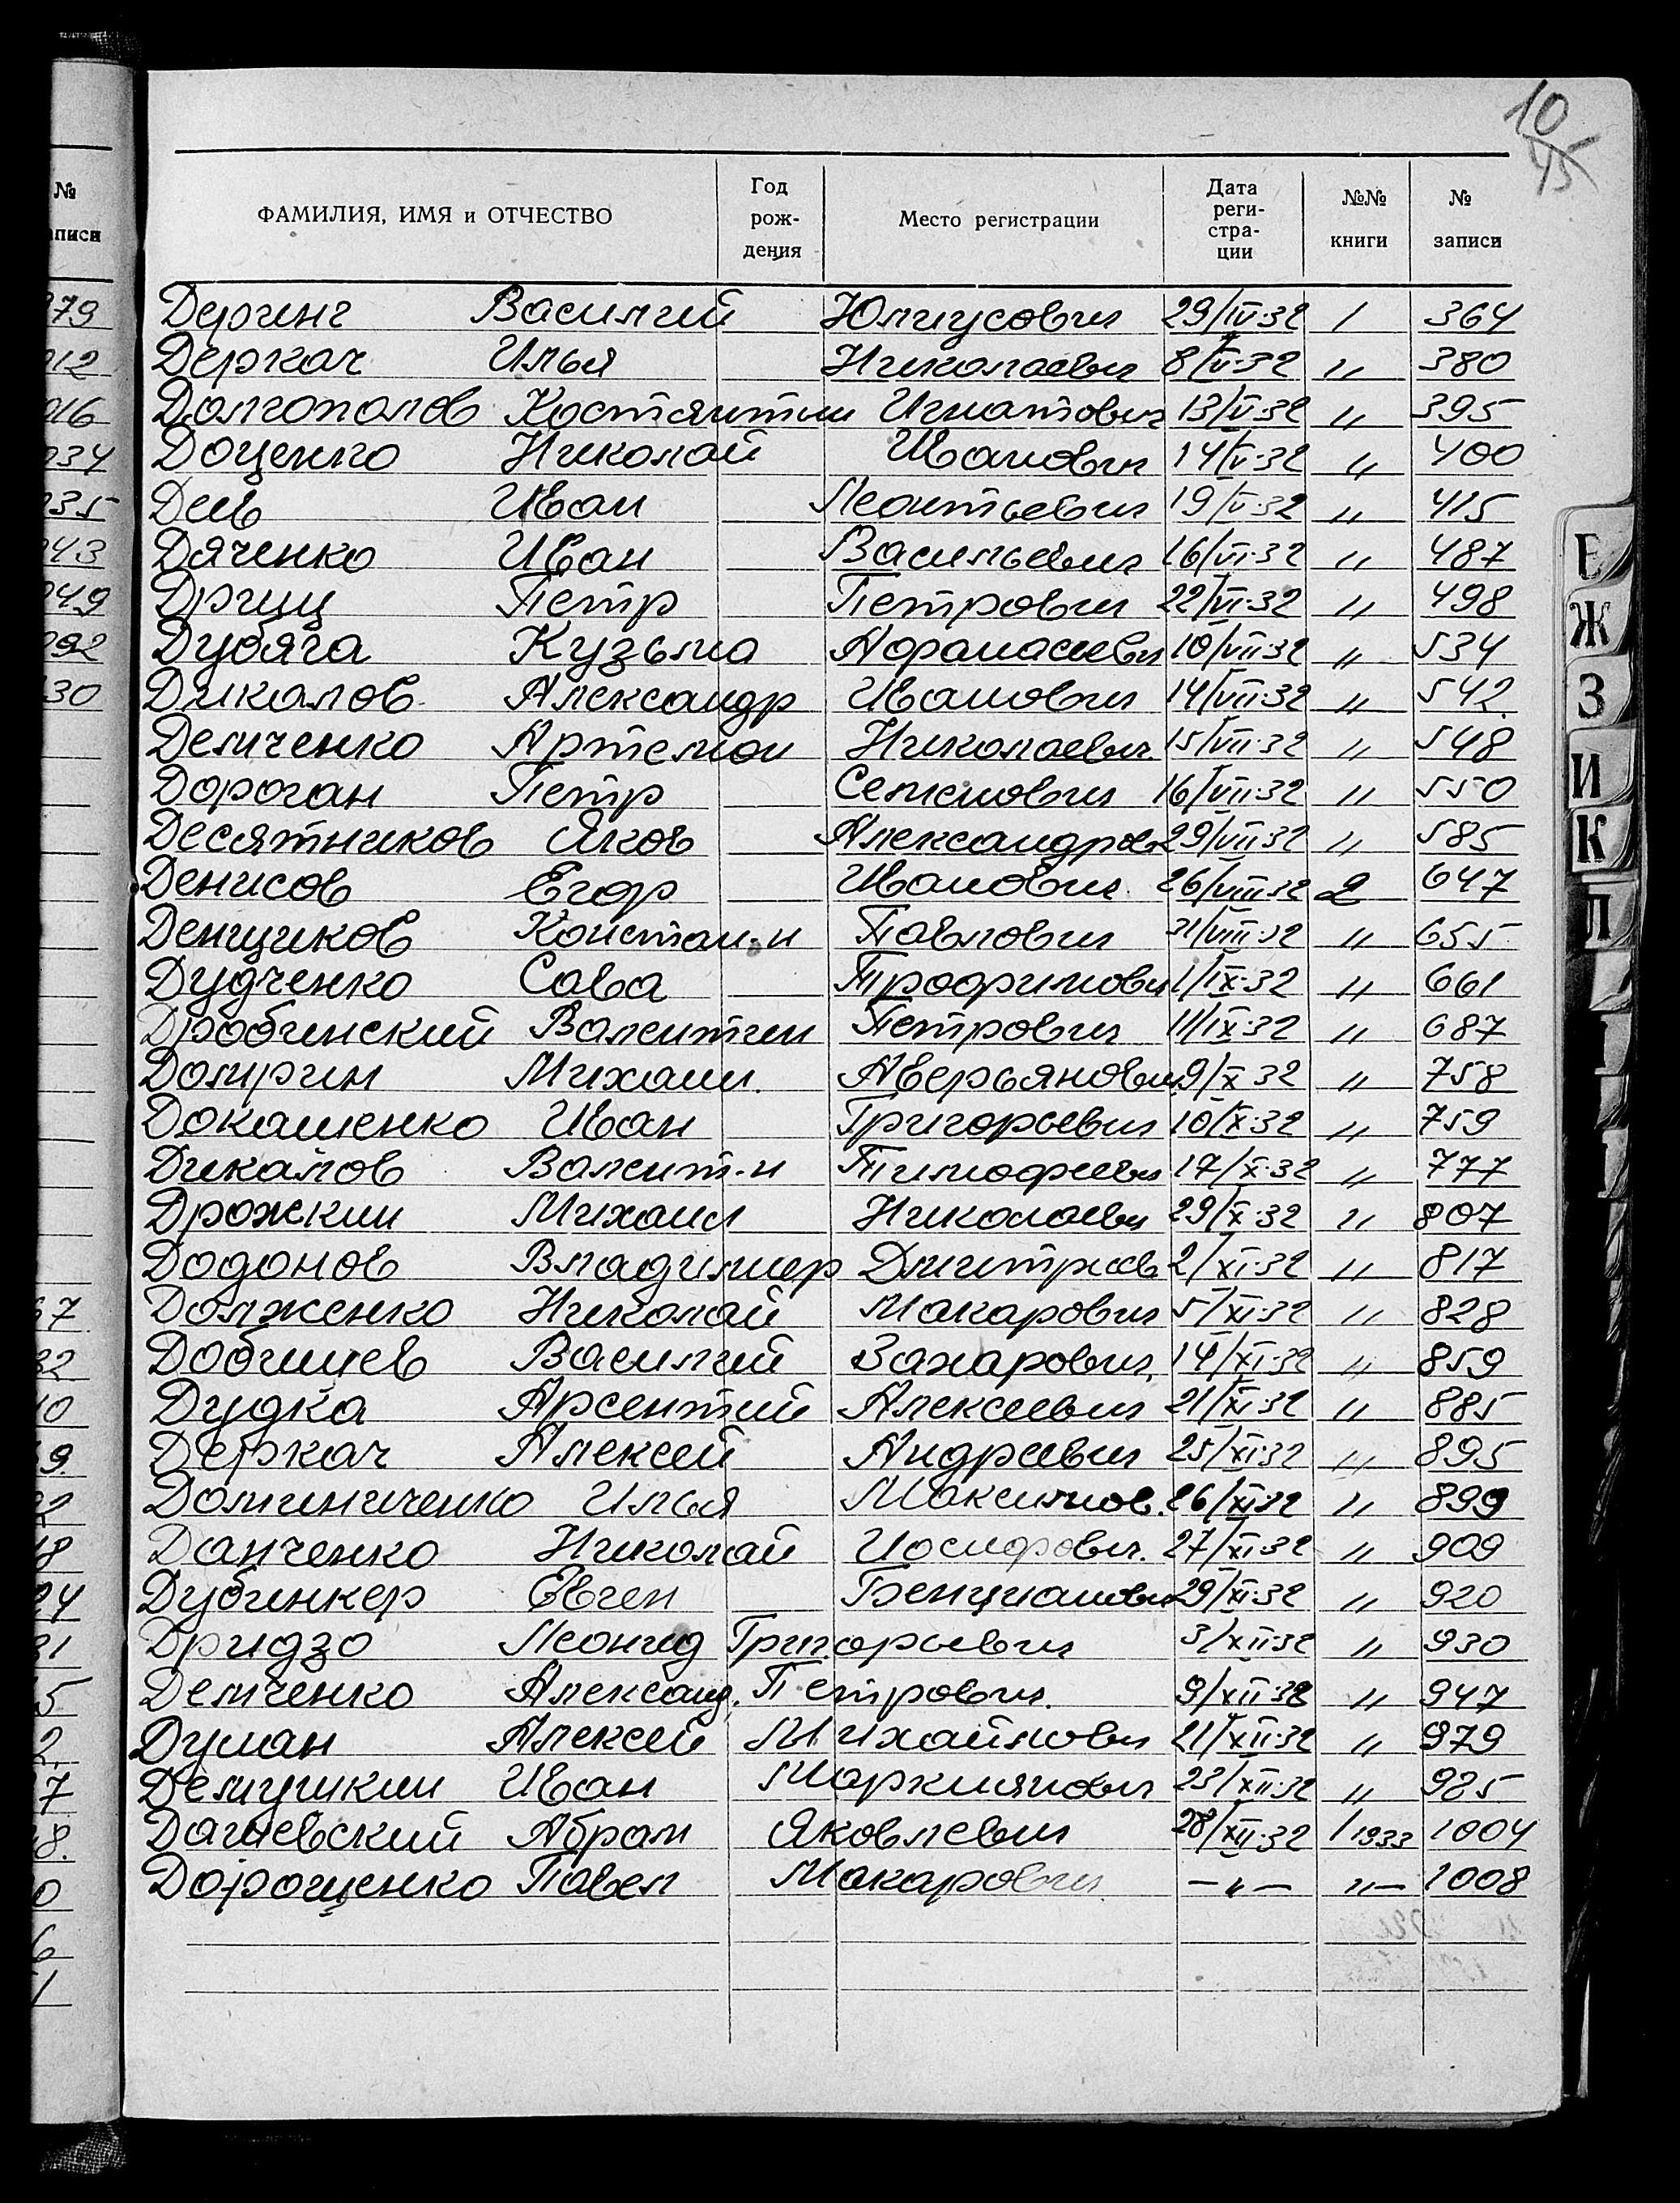 10
45
ФАМИЛИЯ, ИМЯ и ОТЧЕСТВО Год рождения Место регистрации Дата регистрации №№ книги № записи
Деринг Василий Юлиусович 29/IV-32 1 364
Деркач Илья Николаевич 8/V-32 " 380
Долгополов Костянтин Игнатович 13/V-32 " 395
Доценко Николай Иванович 14/V-32 " 400
Деев Иван Леонтьевич 19/V-32 " 415
Дяченко Иван Васильевич 16/VI-32 " 487
Дрищ Петр Петрович 22/VI-32 " 498
Дубяга Кузьма Афанасиевич 10/VII-32 " 534
Дикалов Александр Иванович 14/VII-32 " 542
Демченко Артемон Николаевич 15/VII-32 " 548
Дороган Петр Семенович 16/VII-32 " 550
Десятников Яков Александров 29/VII-32 " 585
Денисов Егор Иванович 26/VIII-32 2 647
Денщиков Констан-н Павлович 31/VIII-32 " 655
Дудченко Сава Трофимович 1/IX-32 " 661
Дробинский Валентин Петрович 11/IX-32 " 687
Домрин Михаил Аверьянович 9/X 32 " 758
Докашенко Иван Григорьевич 10/X-32 " 759
Дикалов Валент-н Тимофеевич 17/X-32 " 777
Дрожкин Михаил Николаевич 29/X-32 " 807
Додонов Владимир Дмитриев 2/XI-32 " 817
Долженко Николай Макарович 5/XI-32 " 828
Добышев Василий Захарович 14/XI-32 " 859
Дудка Арсентий Алексеевич 21/XI-32 " 885
Деркач Алексей Андреевич 25/XI-32 " 895
Доминиченко Илья Максимов. 26/XI-32 " 899
Данченко Николай Иосифович. 27/XI-32 " 909
Дубинкер Евген Бенцианович 29/XI-32 " 920
Дридзо Леонид Григорьевич 3/XII-32 " 930
Демченко Александ. Петрович. 9/XII-32 " 947
Думан Алексей Михайлович 21/XII-32 " 979
Демушкин Иван Маркиянович 23/XII-32 " 985
Дагаевский Абрам Яковлевич 28/XII-32 1 1933 1004
Дорощенко Павел Макарович — " — " — 1008
№
записи
Е
Ж
З
И
К
Л